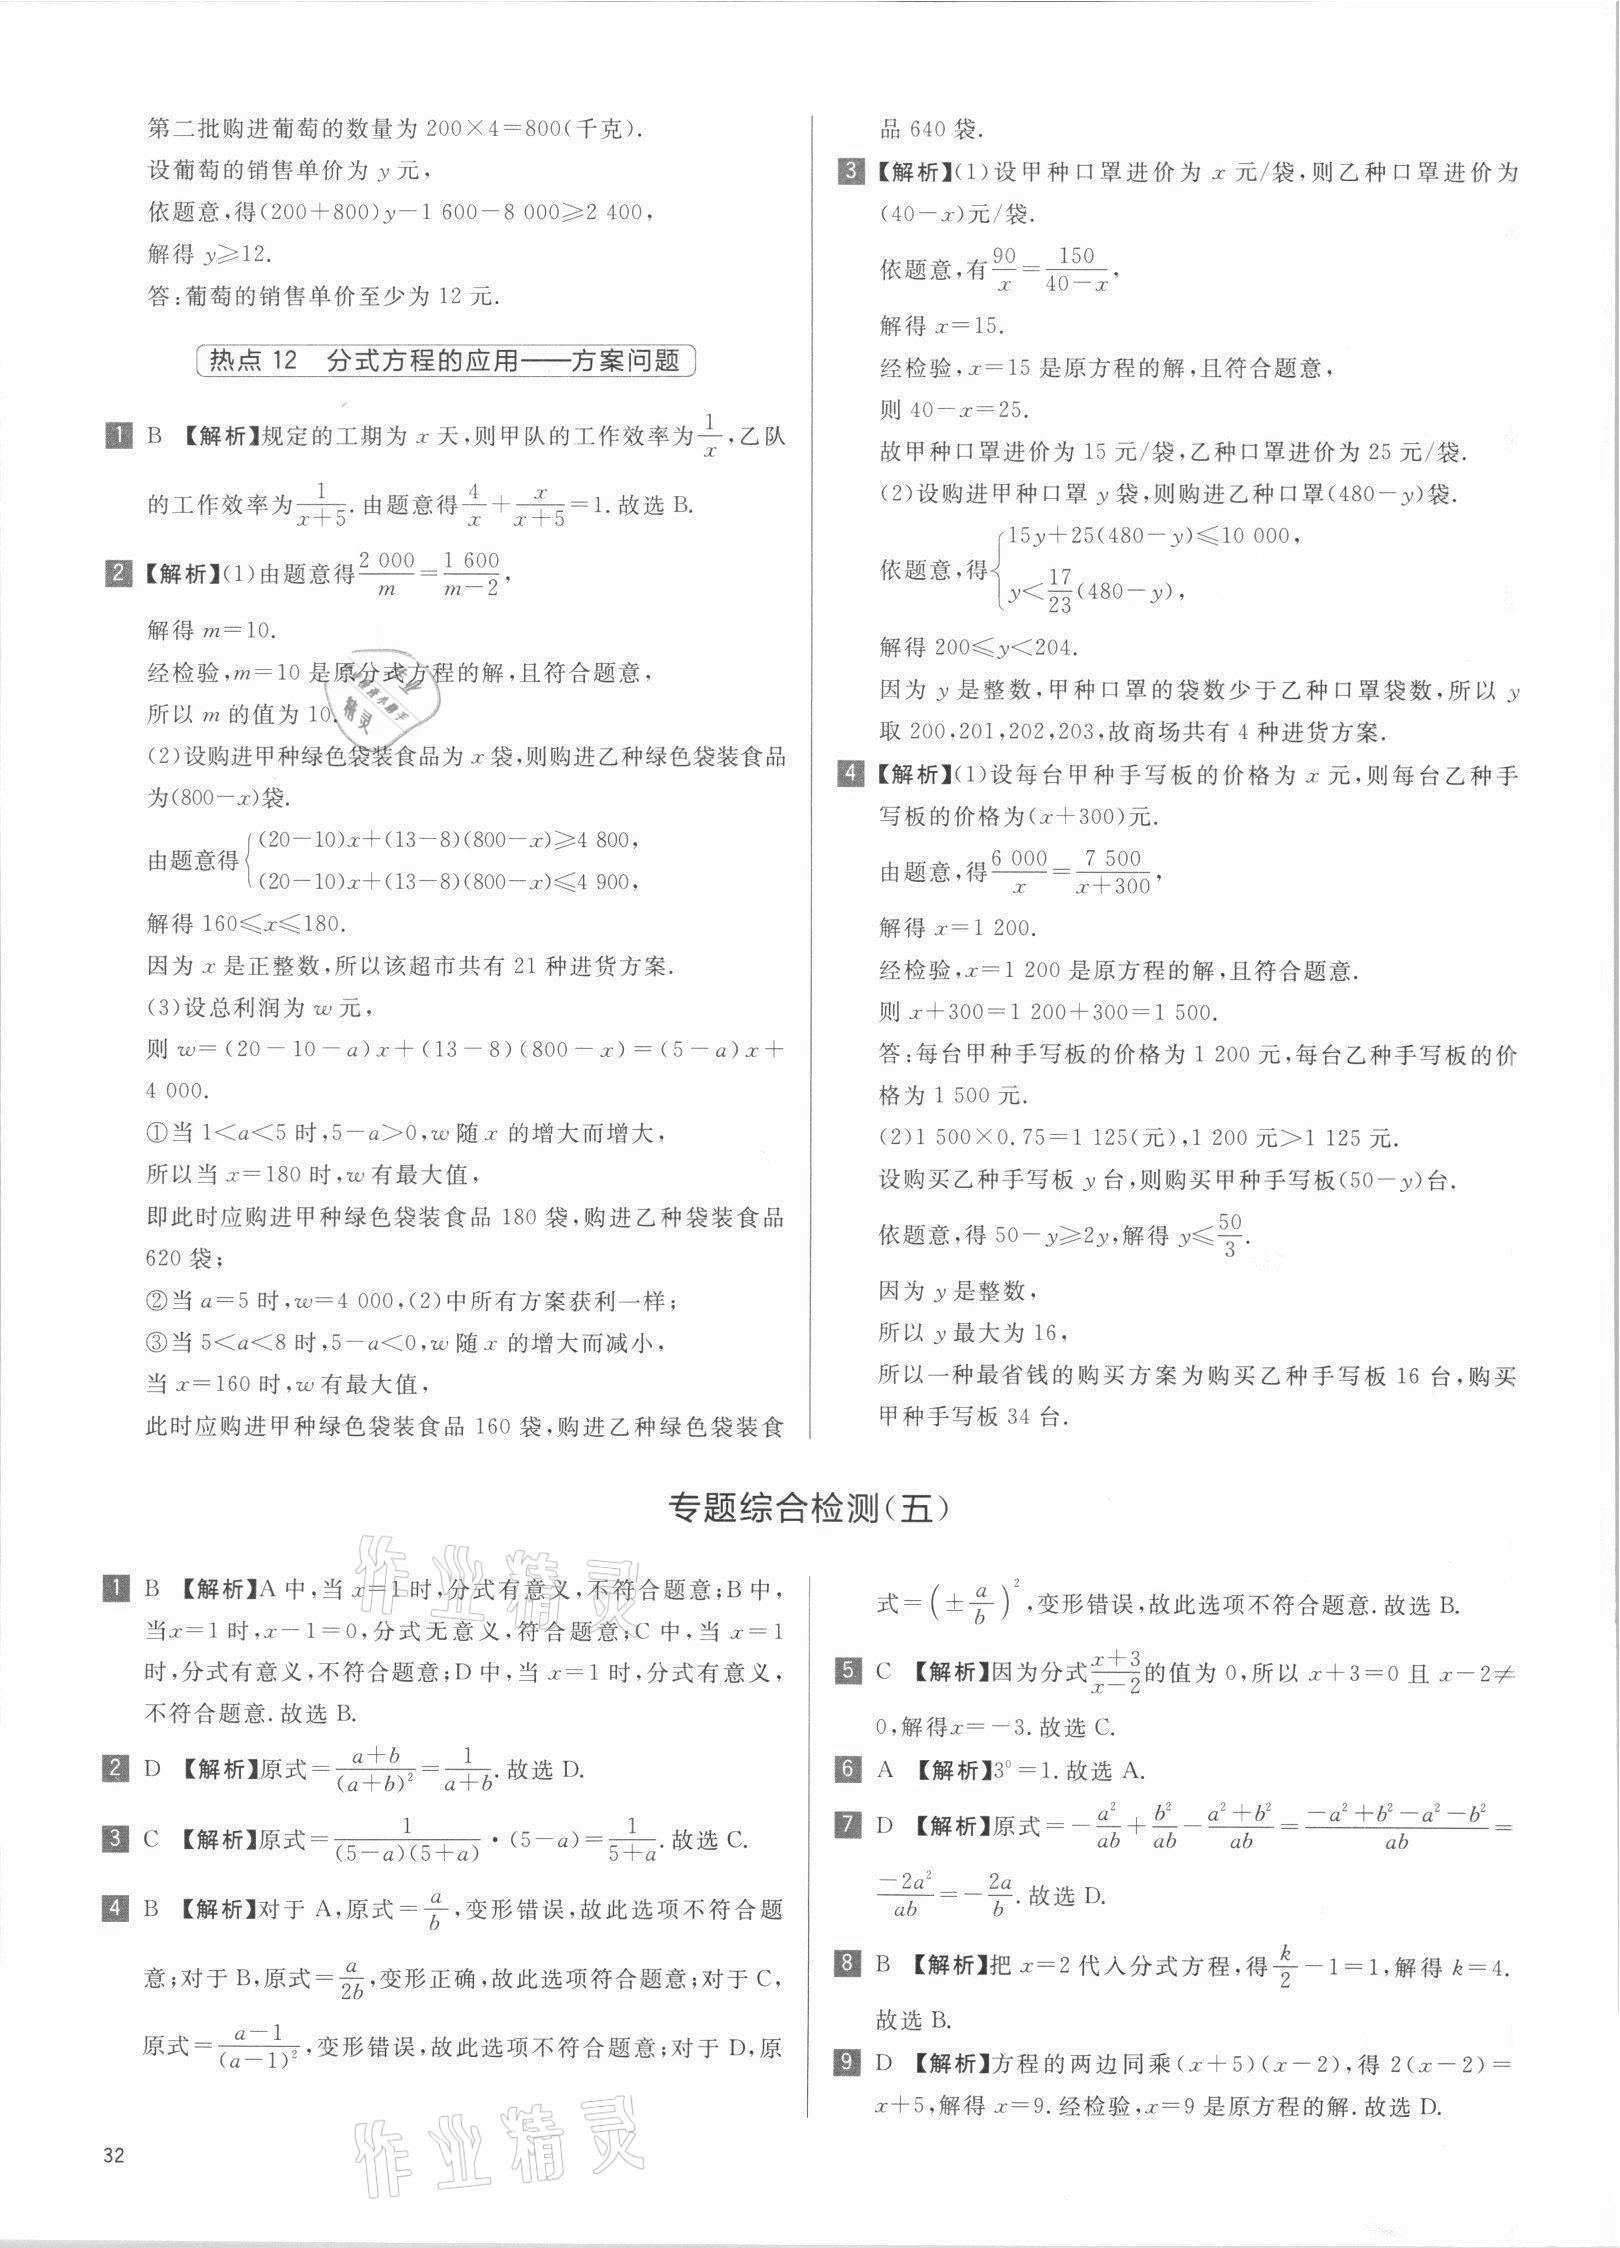 第二批购进葡萄的数量为 200×4=800(千克).
设葡萄的销售单价为 y 元,
依题意,得(200+800)y-1 600-8 000≥2 400,
解得 y≥12.
答:葡萄的销售单价至少为 12 元.
热点 12 分式方程的应用——方案问题
1 B 【解析】规定的工期为 x 天,则甲队的工作效率为1/x,乙队
的工作效率为1/(x+5).由题意得4/x+x/(x+5)=1.故选 B.
2 【解析】(1)由题意得2 000/m=1 600/(m-2),
解得 m=10.
经检验,m=10 是原分式方程的解,且符合题意,
所以 m 的值为 10.
(2)设购进甲种绿色袋装食品为 x 袋,则购进乙种绿色袋装食品
为(800-x)袋.
由题意得{(20-10)x+(13-8)(800-x)≥4 800,
(20-10)x+(13-8)(800-x)≤4 900,
解得 160≤x≤180.
因为 x 是正整数,所以该超市共有 21 种进货方案.
(3)设总利润为 w 元,
则 w=(20-10-a)x+(13-8)(800-x)=(5-a)x+
4 000.
①当 1<a<5 时,5-a>0,w 随 x 的增大而增大,
所以当 x=180 时,w 有最大值,
即此时应购进甲种绿色袋装食品 180 袋,购进乙种袋装食品
620 袋;
②当 a=5 时,w=4 000,(2)中所有方案获利一样;
③当 5<a<8 时,5-a<0,w 随 x 的增大而减小,
当 x=160 时,w 有最大值,
此时应购进甲种绿色袋装食品 160 袋,购进乙种绿色袋装食
品 640 袋.
3 【解析】(1)设甲种口罩进价为 x 元/袋,则乙种口罩进价为
(40-x)元/袋.
依题意,有90/x=150/(40-x),
解得 x=15.
经检验,x=15 是原方程的解,且符合题意,
则 40-x=25.
故甲种口罩进价为 15 元/袋,乙种口罩进价为 25 元/袋.
(2)设购进甲种口罩 y 袋,则购进乙种口罩(480-y)袋.
依题意,得{15y+25(480-y)≤10 000,
y<17/23(480-y),
解得 200≤y<204.
因为 y 是整数,甲种口罩的袋数少于乙种口罩袋数,所以 y
取 200,201,202,203,故商场共有 4 种进货方案.
4 【解析】(1)设每台甲种手写板的价格为 x 元,则每台乙种手
写板的价格为(x+300)元.
由题意,得6 000/x=7 500/(x+300),
解得 x=1 200.
经检验,x=1 200 是原方程的解,且符合题意.
则 x+300=1 200+300=1 500.
答:每台甲种手写板的价格为 1 200 元,每台乙种手写板的价
格为 1 500 元.
(2)1 500×0.75=1 125(元),1 200 元>1 125 元.
设购买乙种手写板 y 台,则购买甲种手写板(50-y)台.
依题意,得 50-y≥2y,解得 y≤50/3.
因为 y 是整数,
所以 y 最大为 16,
所以一种最省钱的购买方案为购买乙种手写板 16 台,购买
甲种手写板 34 台.
专题综合检测(五)
1 B 【解析】A 中,当 x=1 时,分式有意义,不符合题意;B 中,
当x=1 时,x-1=0,分式无意义,符合题意;C 中,当 x=1
时,分式有意义,不符合题意;D 中,当 x=1 时,分式有意义,
不符合题意.故选 B.
2 D 【解析】原式=(a+b)/(a+b)²=1/(a+b).故选 D.
3 C 【解析】原式=1/((5-a)(5+a))·(5-a)=1/(5+a).故选 C.
4 B 【解析】对于 A,原式=a/b,变形错误,故此选项不符合题
意;对于 B,原式=a/2b,变形正确,故此选项符合题意;对于 C,
原式=(a-1)/(a-1)²,变形错误,故此选项不符合题意;对于 D,原
式=(±a/b)²,变形错误,故此选项不符合题意.故选 B.
5 C 【解析】因为分式(x+3)/(x-2)的值为 0,所以 x+3=0 且 x-2≠
0,解得x=-3.故选 C.
6 A 【解析】3⁰=1.故选 A.
7 D 【解析】原式=-a²/ab+b²/ab-(a²+b²)/ab=(-a²+b²-a²-b²)/ab=
-2a²/ab=-2a/b.故选 D.
8 B 【解析】把 x=2 代入分式方程,得k/2-1=1,解得 k=4.
故选 B.
9 D 【解析】方程的两边同乘(x+5)(x-2),得 2(x-2)=
x+5,解得 x=9.经检验,x=9 是原方程的解.故选 D.
32
作业精灵
作业精灵